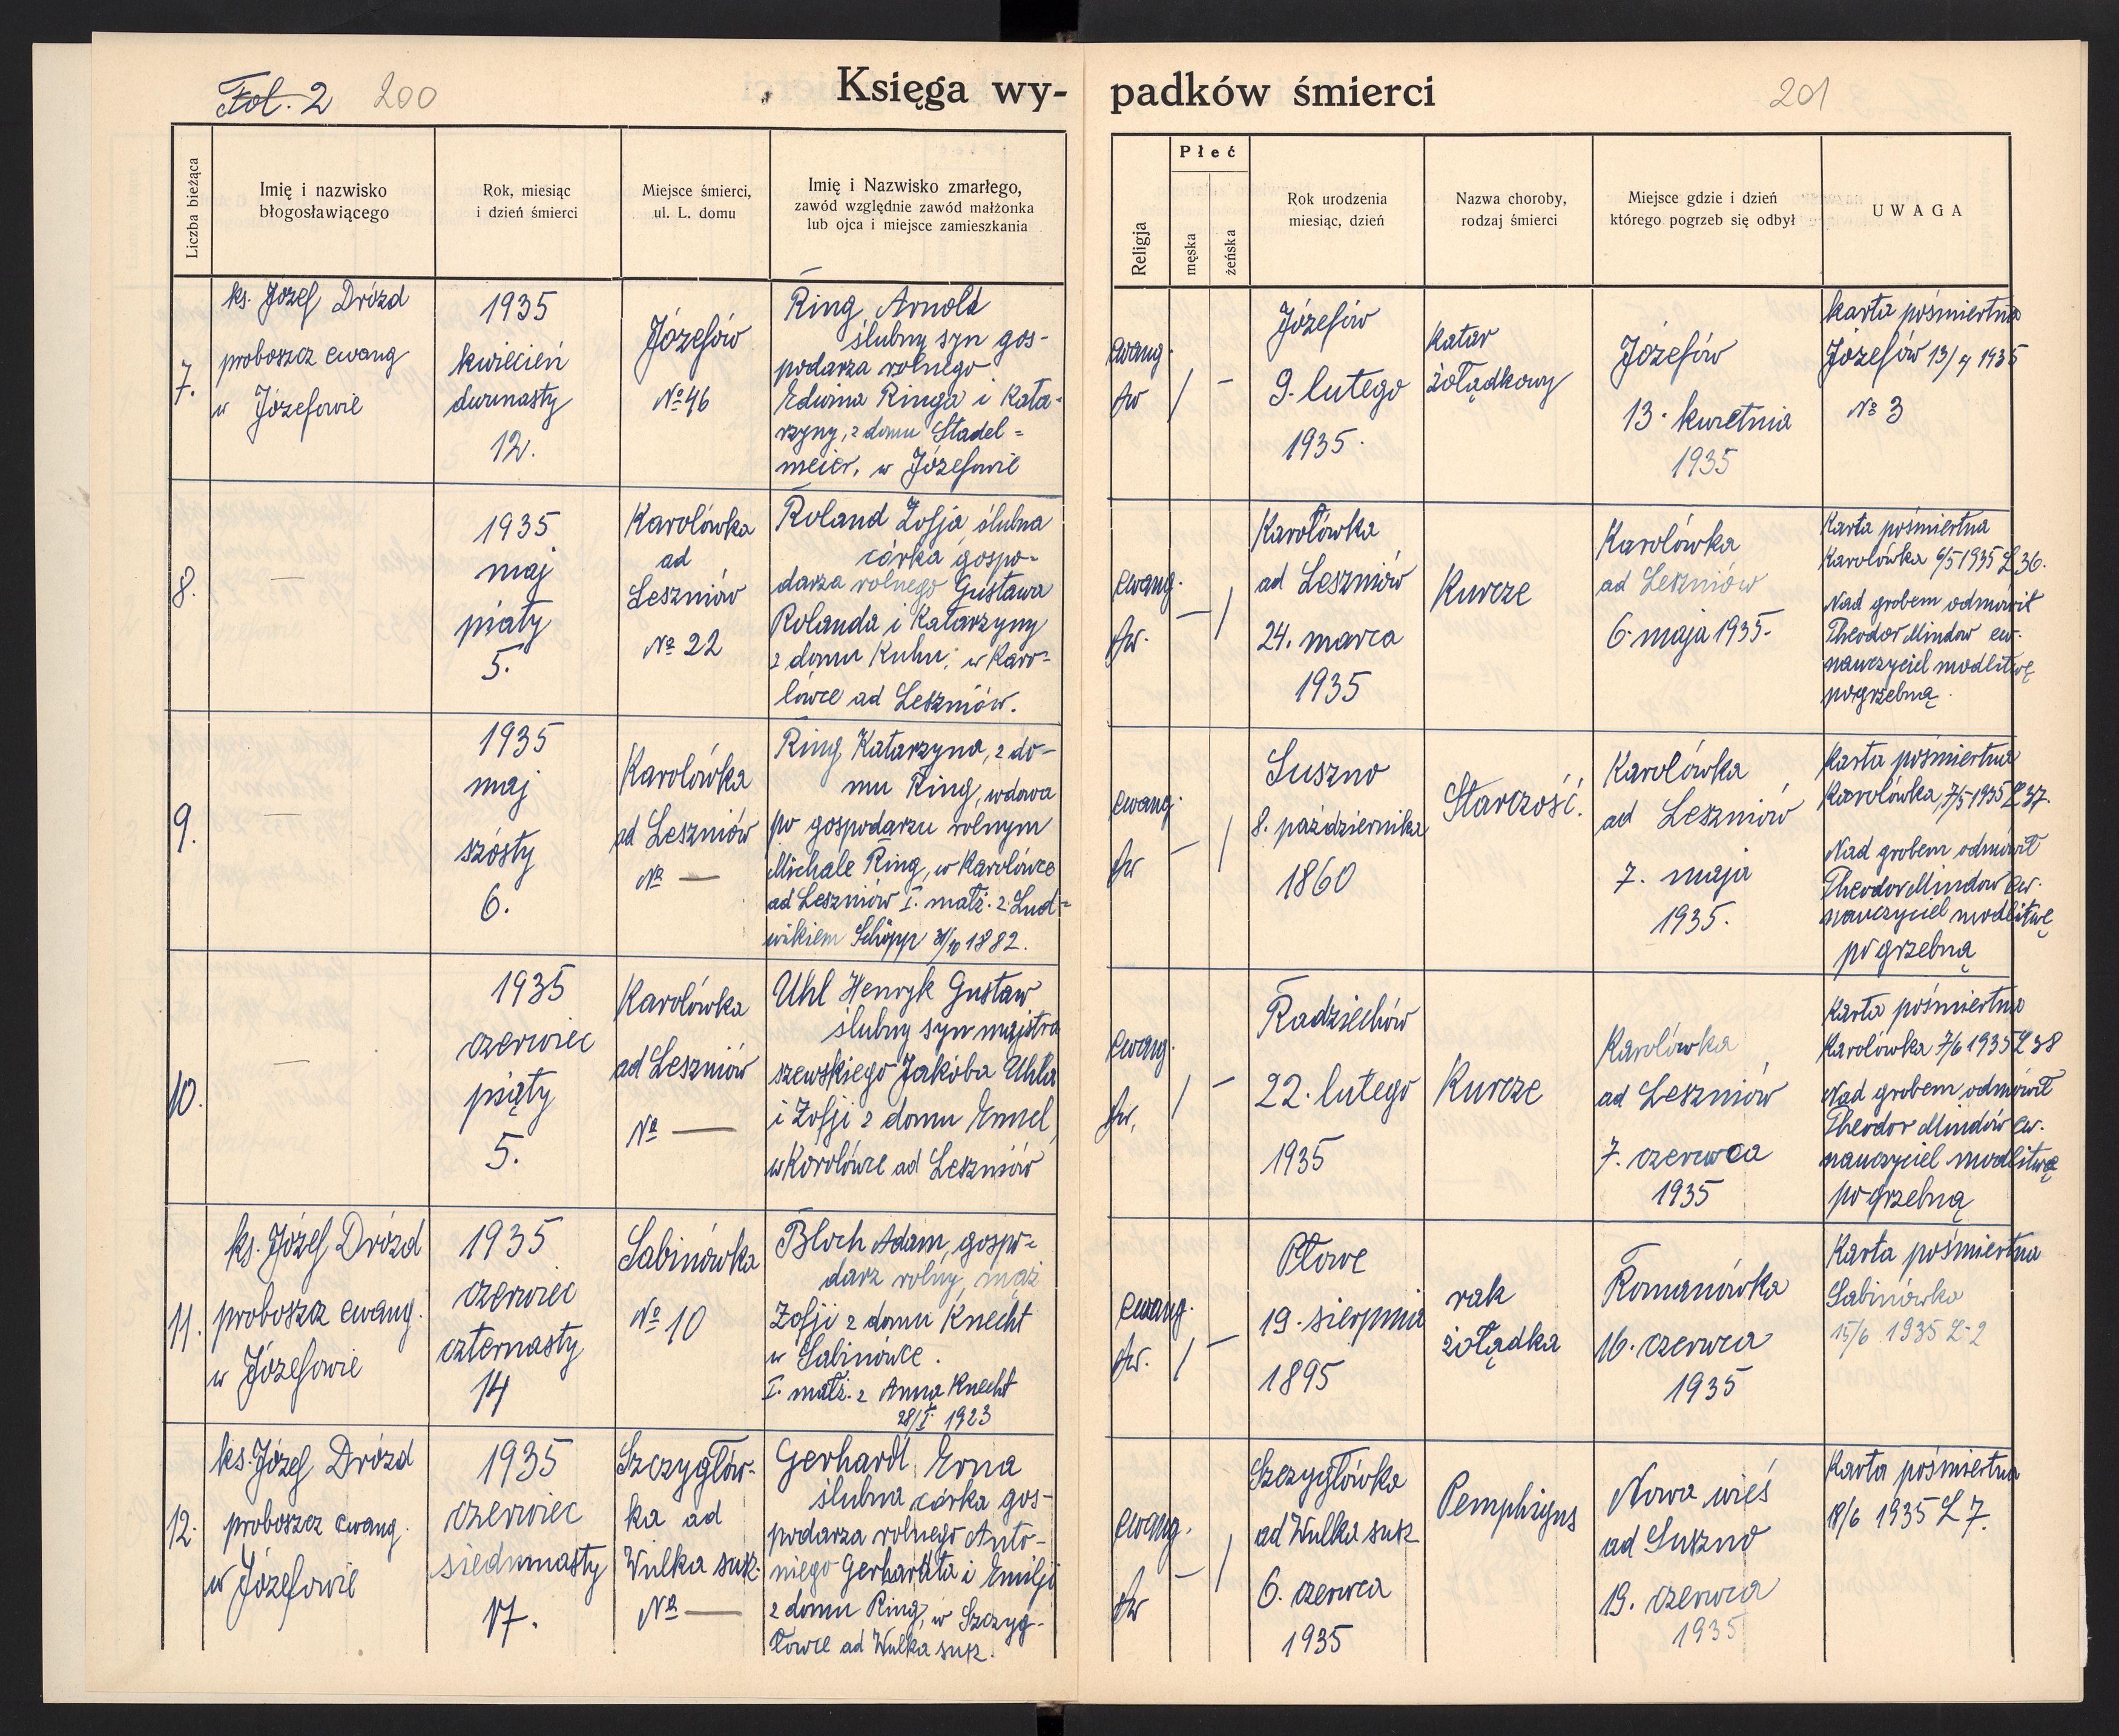 Fol. 2 200
Księga wy-
padków śmierci
201
Liczba bieżąca
Imię i nazwisko
błogosławiącego
Rok, miesiąc
i dzień śmierci
Miejsce śmierci,
ul. L. domu
Imię i Nazwisko zmarłego,
zawód względnie zawód małżonka
lub ojca i miejsce zamieszkania
Religja
Płeć
męska
żeńska
Rok urodzenia
miesiąc, dzień
Nazwa choroby,
rodzaj śmierci
Miejsce gdzie i dzień
którego pogrzeb się odbył
UWAGA
7.
ks. Józef Drózd
proboszcz ewang
w Józefowie
1935
kwiecień
dwunasty
12.
Józefów
№ 46
Ring Arnold
ślubny syn gos-
podarza rolnego
Edwina Ringa i Kata-
rzyny, z domu Stadel=
meier, w Józefowie
ewang.
/ -
Józefów
9. lutego
1935.
Katar
żołądkowy
Józefów
13. kwietnia
1935
Karta pośmiertna
Józefów 13/4 1935
№ 3
8.
—
1935
maj
piąty
5.
Karolówka
ad
Leszniów
№ 22
Roland Zofja ślubna
córka gospo-
darza rolnego Gustawa
Rolanda i Katarzyny
z domu Kuhn, w Karo-
lówce ad Leszniów.
ewang.
- /
Karolówka
ad Leszniów
24. marca
1935
Kurcze
Karolówka
ad Leszniów
6. maja 1935.
Karta pośmiertna
Karolówka 6/5 1935 L 36.
Nad grobem odmówił
Theodor Mindow ew.
nauczyciel modlitwę
pogrzebną.
9.
—
1935
maj
szósty
6.
Karolówka
ad Leszniów
№ —
Ring Katarzyna, z do-
mu Ring, wdowa
po gospodarzu rolnym
Michale Ring, w Karolówce
ad Leszniów I. małż. z Lud=
wikiem Schöpp 31/10 1882.
ewang.
- /
Suszno
8. października
1860
Starczość.
Karolówka
ad Leszniów
7. maja
1935.
Karta pośmiertna
Karolówka, 7/5 1935 L 37.
Nad grobem odmówił
Theodor Mindow ew.
nauczyciel modlitwę
pogrzebną
10.
—
1935
czerwiec
piąty
5.
Karolówka
ad Leszniów
№ —
Uhl Henryk Gustaw
ślubny syn majstra
szewskiego Jakóba Uhla
i Zofji z domu Emel,
w Karolówce ad Leszniów
ewang.
/ -
Radziechów
22. lutego
1935
Kurcze
Karolówka
ad Leszniów
7. czerwca
1935
Karta pośmiertna
Karolówka 7/6 1935 L 38
Nad grobem odmówił
Theodor Mindów ew.
nauczyciel modlitwę
pogrzebną
11.
ks. Józef Drózd
proboszcz ewang.
w Józefowie
1935
czerwiec
czternasty
14
Sabinówka
№ 10
Bloch Adam, gospo-
darz rolny, mąż
Zofji z domu Knecht
w Sabinówce.
I. małż. z Anną Knecht
28/I. 1923
ewang.
/ -
Płowe
19. sierpnia
1895
rak
żołądka
Romanówka
16. czerwca
1935
Karta pośmiertna
Sabinówka
15/6 1935 L. 2
12.
ks. Józef Drózd
proboszcz ewang.
w Józefowie
1935
czerwiec
siedmnasty
17.
Szczygłów-
ka ad
Wulka susz.
№ —
Gerhardt Erna
ślubna córka gos-
podarza rolnego Anto-
niego Gerhardta i Emilji
z domu Ring, w Szczyg-
łówce ad Wulka susz.
ewang.
- /
Szczygłówka
ad Wulka susz
6. czerwca
1935
Pemphigus
Nowa wieś
ad Suszno
19. czerwca
1935
Karta pośmiertna
18/6 1935 L 7.